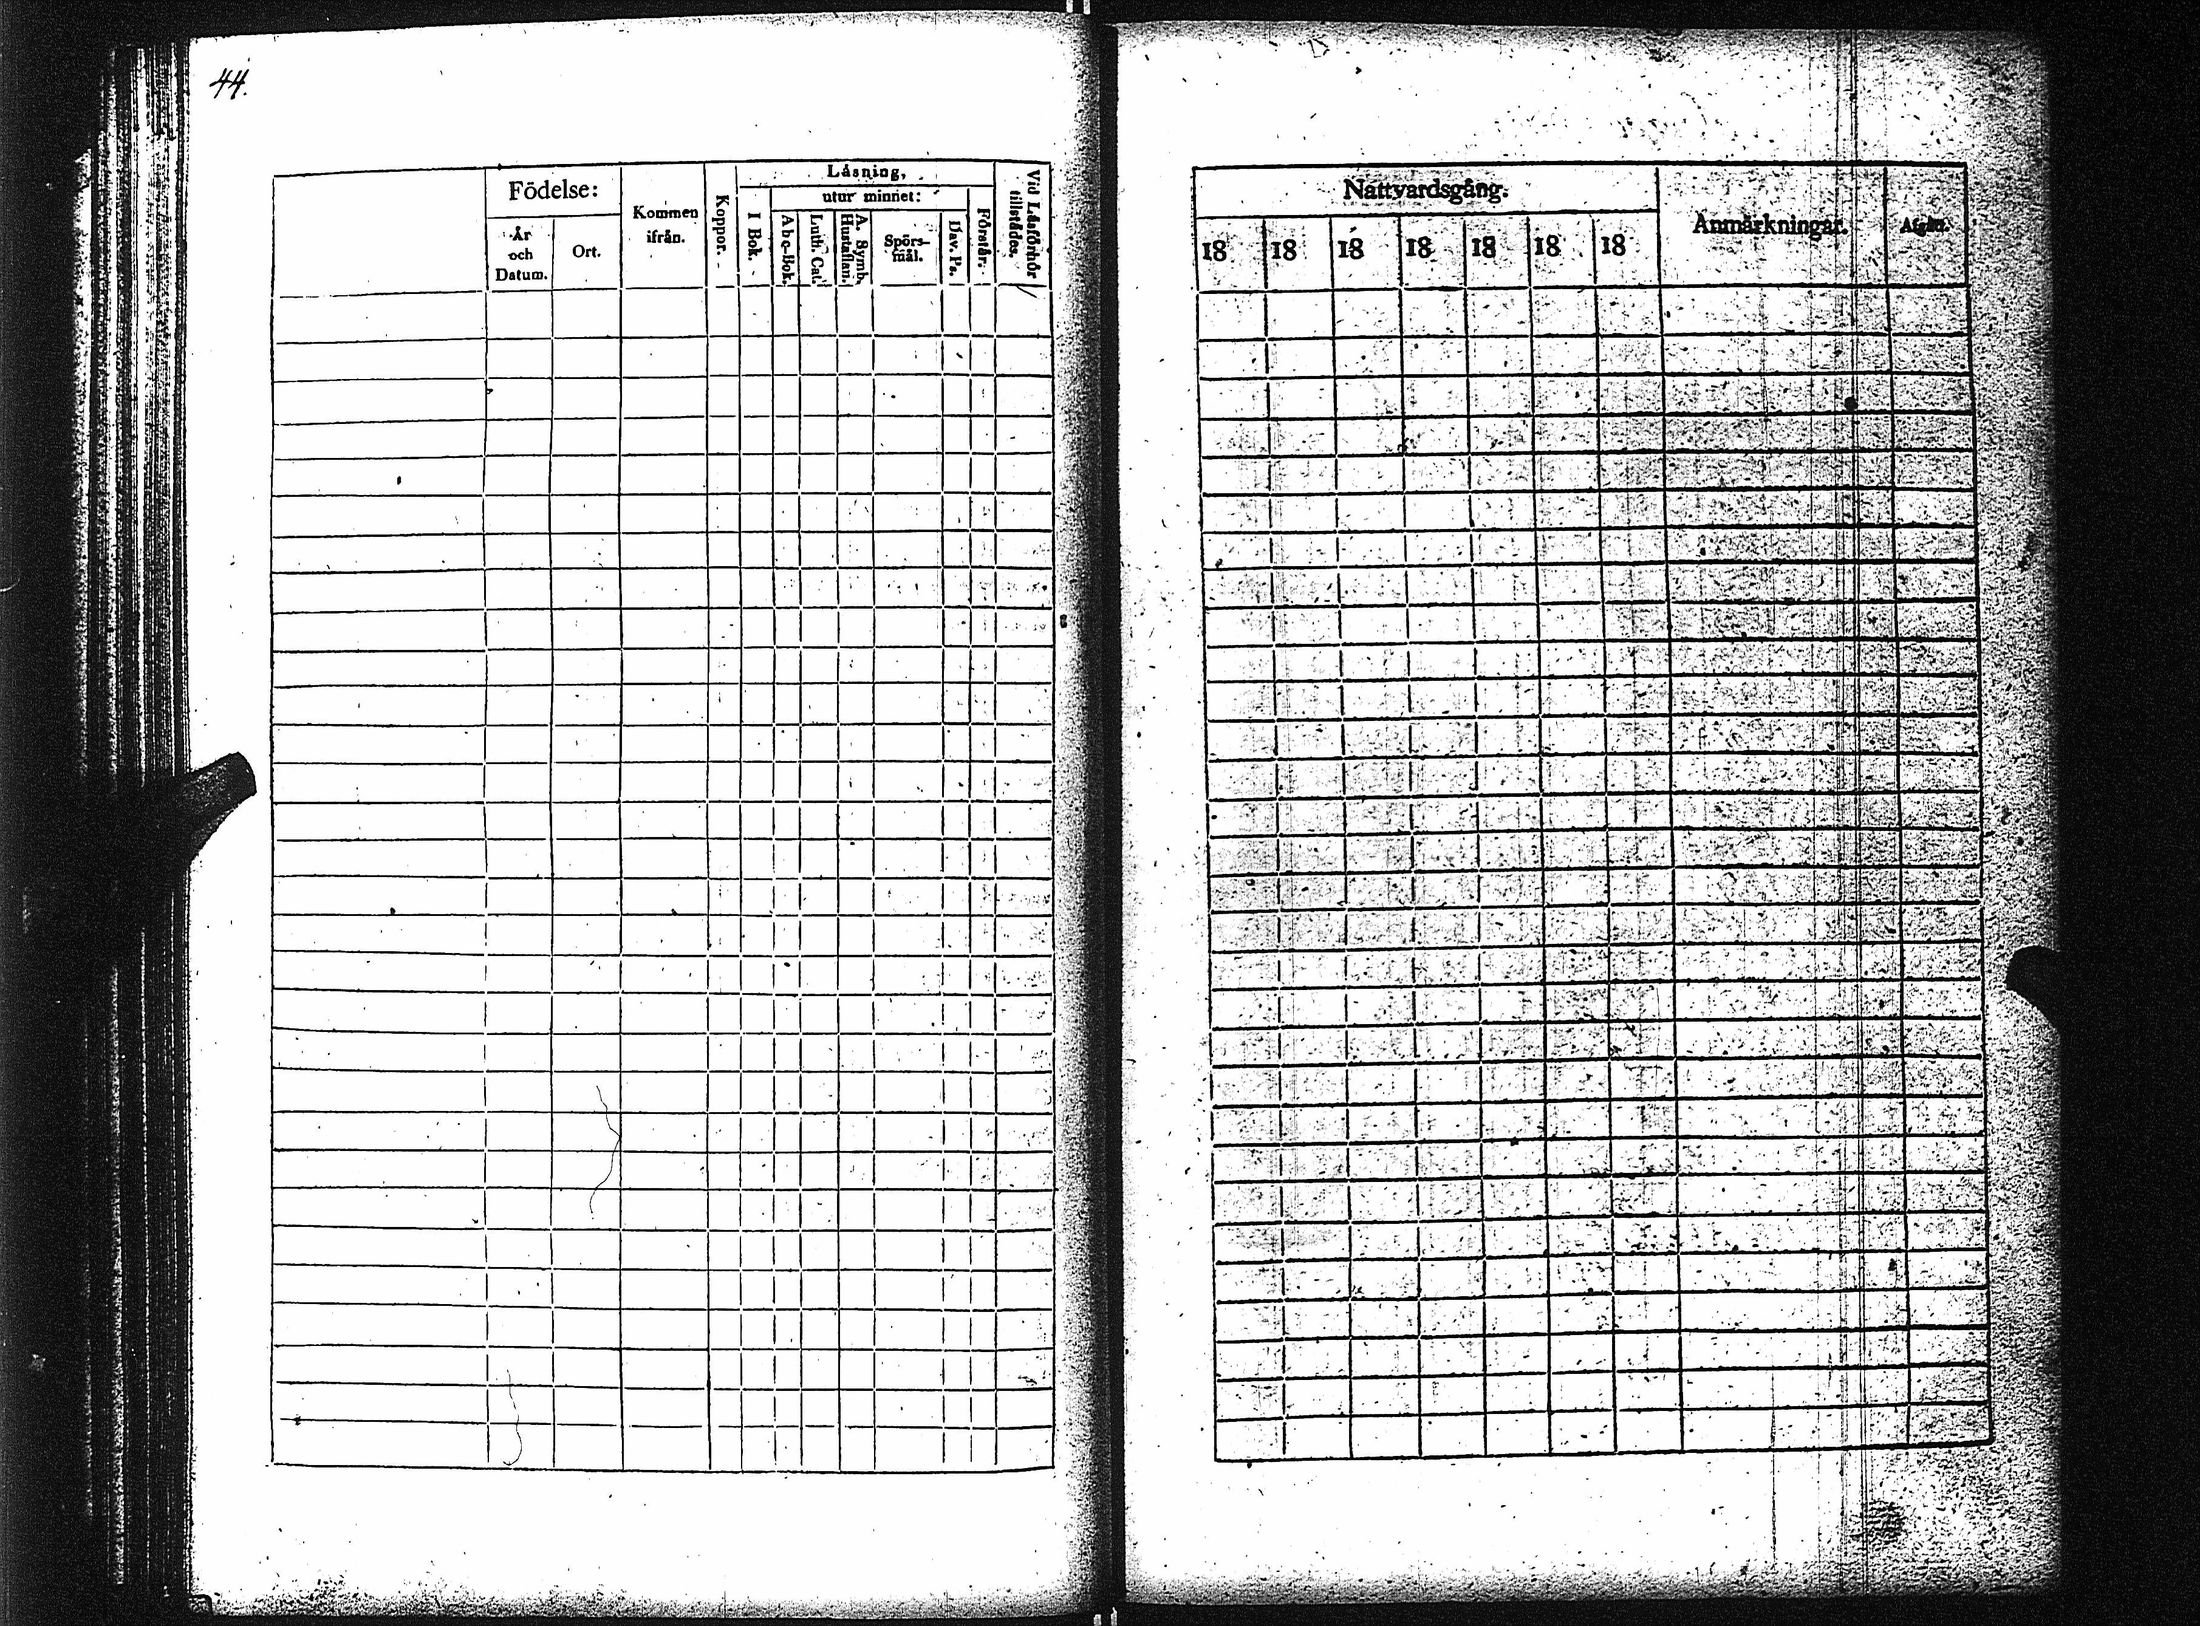 44.
Födelse:
År
och
Datum.
Ort.
Kommen
ifrån.
Koppor.
Läsning,
I Bok.
utur minnet:
Abc-Bok.
Luth. Cat.
A. Symb.
Hustaflan.
Spörs-
mål.
Dav. Ps.
Förstår.
Vid Läsförhör
tillstädes.
Nattvardsgång.
18 18 18 18 18 18 18
Anmärkningar.
Afgått.